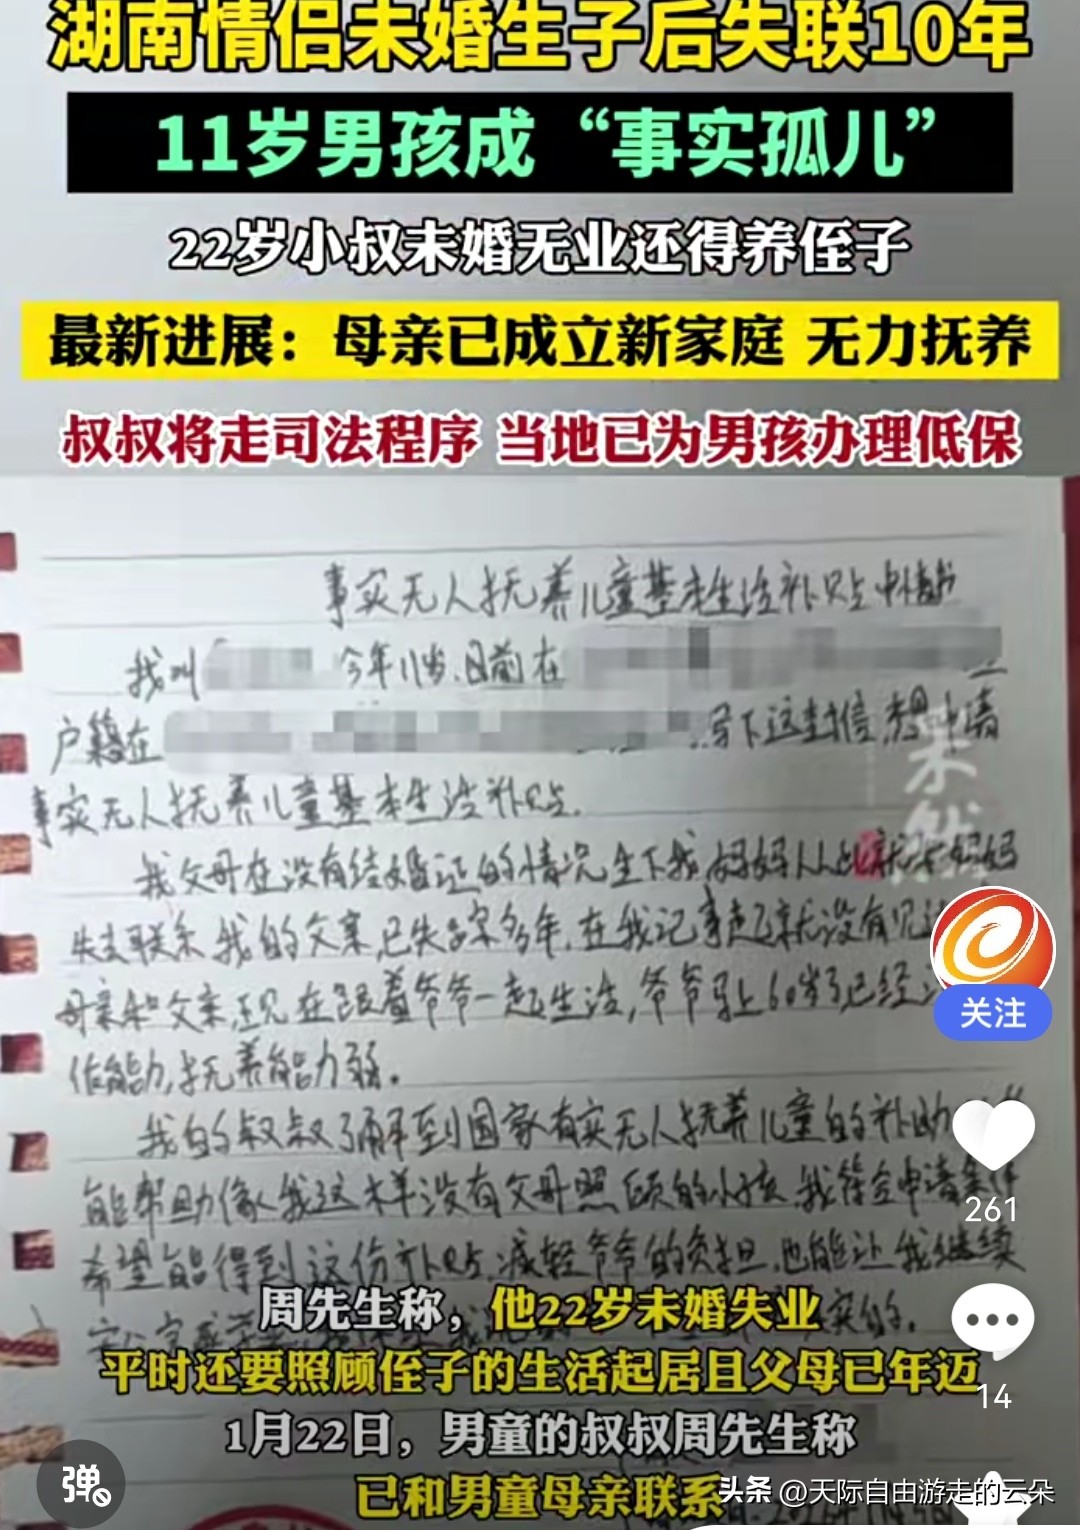 湖南情侣未婚生子后失联10年
11岁男孩成“事实孤儿”
22岁小叔未婚无业还得养侄子
最新进展：母亲已成立新家庭 无力抚养
叔叔将走司法程序 当地已为男孩办理低保
事实无人抚养儿童基本生活补贴申请书
我叫 今年11岁，目前在
户籍在 写下这封信，想申请
事实无人抚养儿童基本生活补贴。
我父母在没有结婚证的情况生下我，妈妈 妈妈
失去联系，我的父亲已失踪多年，在我记事起就没有见过
母亲和父亲，现在跟着爷爷一起生活，爷爷马上60岁了，已经
作能力，抚养能力弱。
我的叔叔了解到国家有实无人抚养儿童的补助
能帮助像我这样没有父母照顾的小孩，我符合申请条件
希望能得到这份补贴，减轻爷爷的负担，也能让我继续
关注
261
周先生称，他22岁未婚失业
平时还要照顾侄子的生活起居且父母已年迈
14
1月22日，男童的叔叔周先生称
弹
已和男童母亲联系
头条 @天际自由游走的云朵